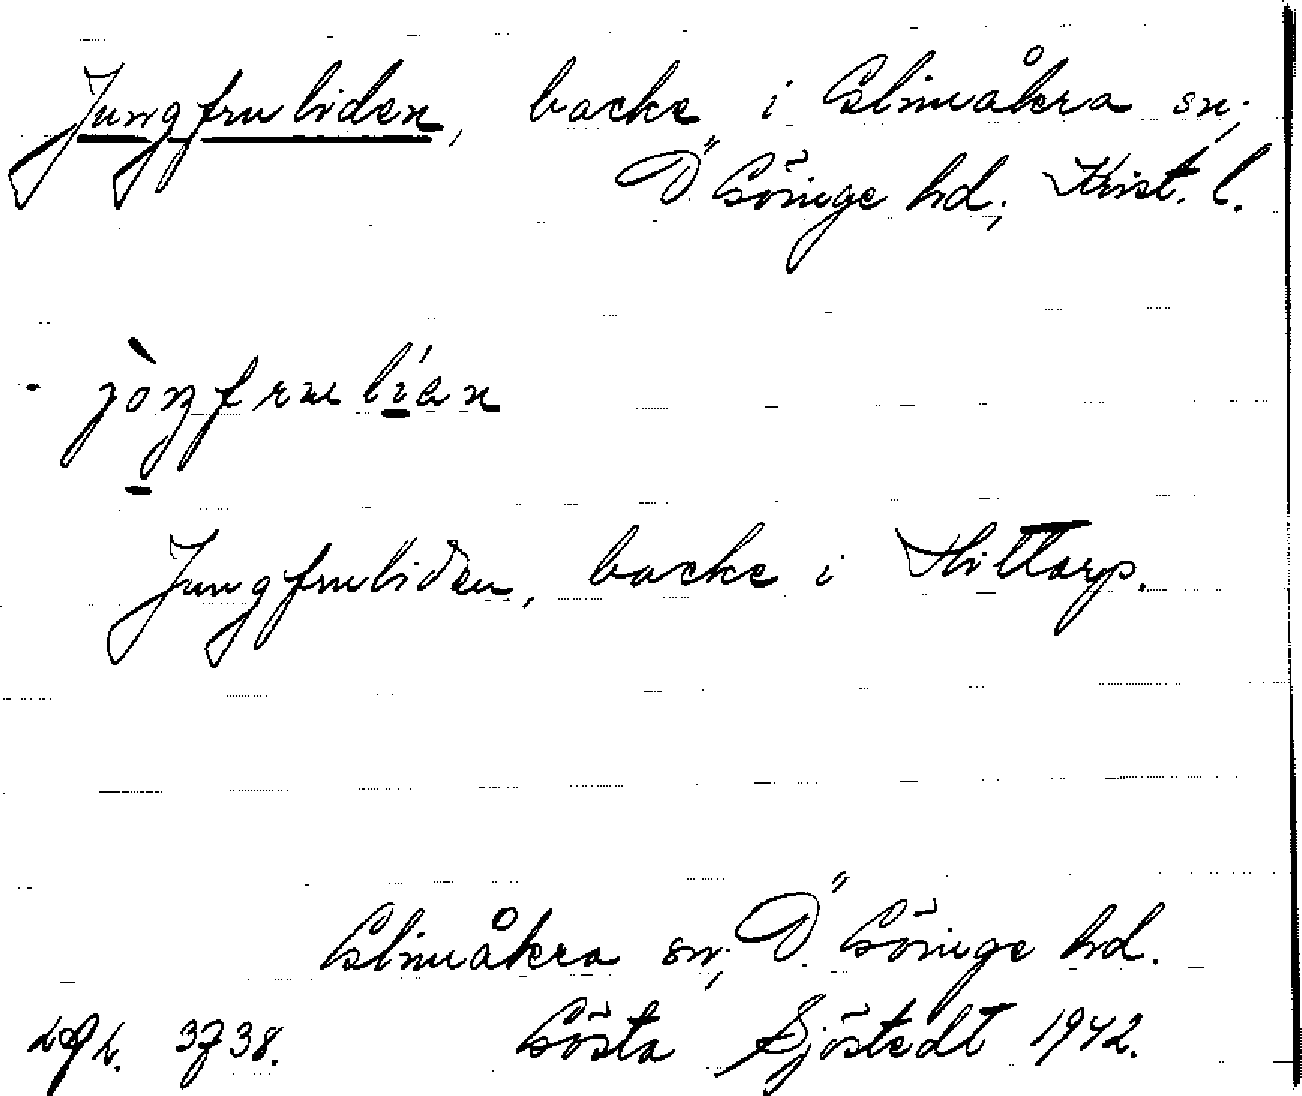 Jungfruliden, backe i Glimåkra sn;
Ö. Göinge hd; Krist. l.
jòŋfrulían
Jungfruliden, backe i Hittarp.
Glimåkra sn; Ö. Göinge hd.
3738. Gösta Sjöstedt 1942.